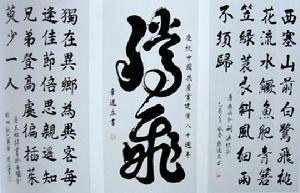 西塞山前白鷺飛桃
花流水鱖魚肥青箬
笠綠蓑衣斜風細雨
不須歸
慶祝中國共產黨建黨八十週年
騰飛
獨在異鄉為異客每
逢佳節倍思親遙知
兄弟登高處徧插茱
萸少一人